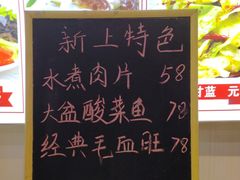 新上特色
水煮肉片 58
大盆酸菜鱼 78
经典毛血旺 78
甘蓝 元